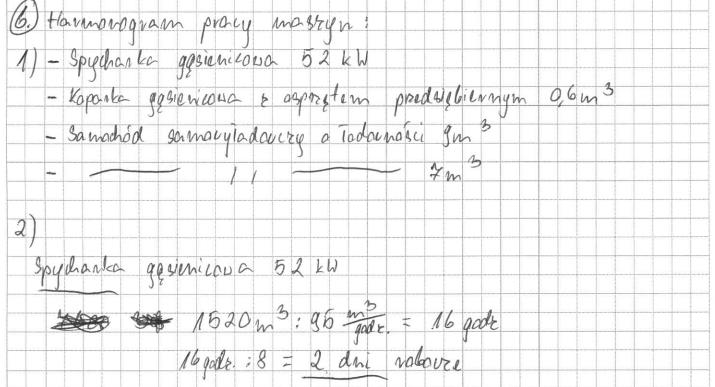 6. Harmonogram pracy maszyn:
1) - Spycharka gąsienicowa 52 kW
- Koparka gąsienicowa z osprzętem przedsiębiernym 0,6 m³
- Samochód samowyładowczy o ładowności 9m³
- —— 11 —— 7m³
2)
Spycharka gąsienicowa 52 kW
1520 m³ : 95 m³/godz. = 16 godz
16 godz. : 8 = 2 dni robocze